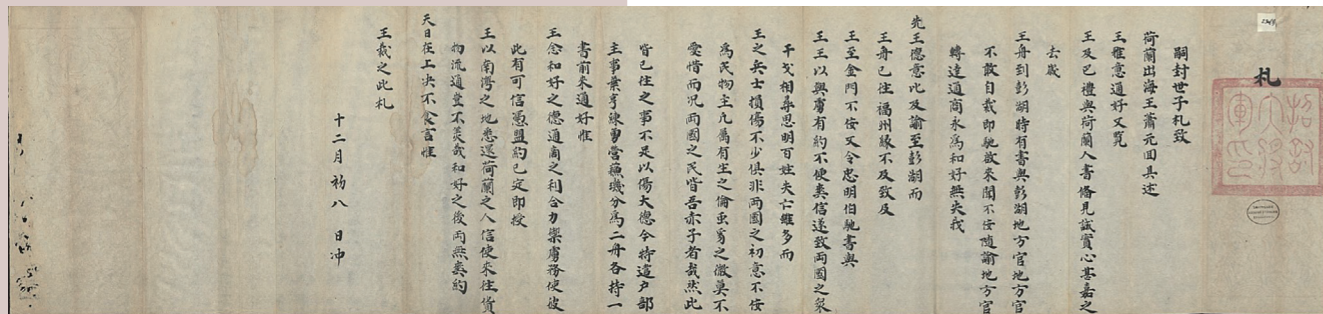 札
招討大將軍印
嗣封世子札致
荷蘭出海王蕭元回具述
王雅意通好又覧
王及巴禮與荷蘭人書備見誠實心甚嘉之
去歲
王舟到彭湖時有書與彭湖地方官地方官
不敢自裁即馳啟來聞不佞隨諭地方官
轉達通商永爲和好無失我
先王德意比及諭至彭湖而
王舟已往福州緣不及致及
王至金門不佞又令忠明伯馳書與
王王以與虜有約不便失信遂致兩國之衆
干戈相尋思明百姓失亡雖多而
王之兵士損傷不少俱非兩國之初意不佞
爲民物主凡屬有生之倫虫豸之微莫不
愛惜而况兩國之民皆吾赤子者哉然此
皆已往之事不足以傷大德今特遣户部
主事葉亨練勇營蘇璣分爲二舟各持一
書前來通好惟
王念和好之德通商之利合力禦虜務使彼
此有可信憑盟約已定即授
王以南灣之地悉還荷蘭之人信使來往貨
物流通豈不美哉和好之後兩無失約
天日在上决不食言惟
王裁之此札
十二月初八日冲